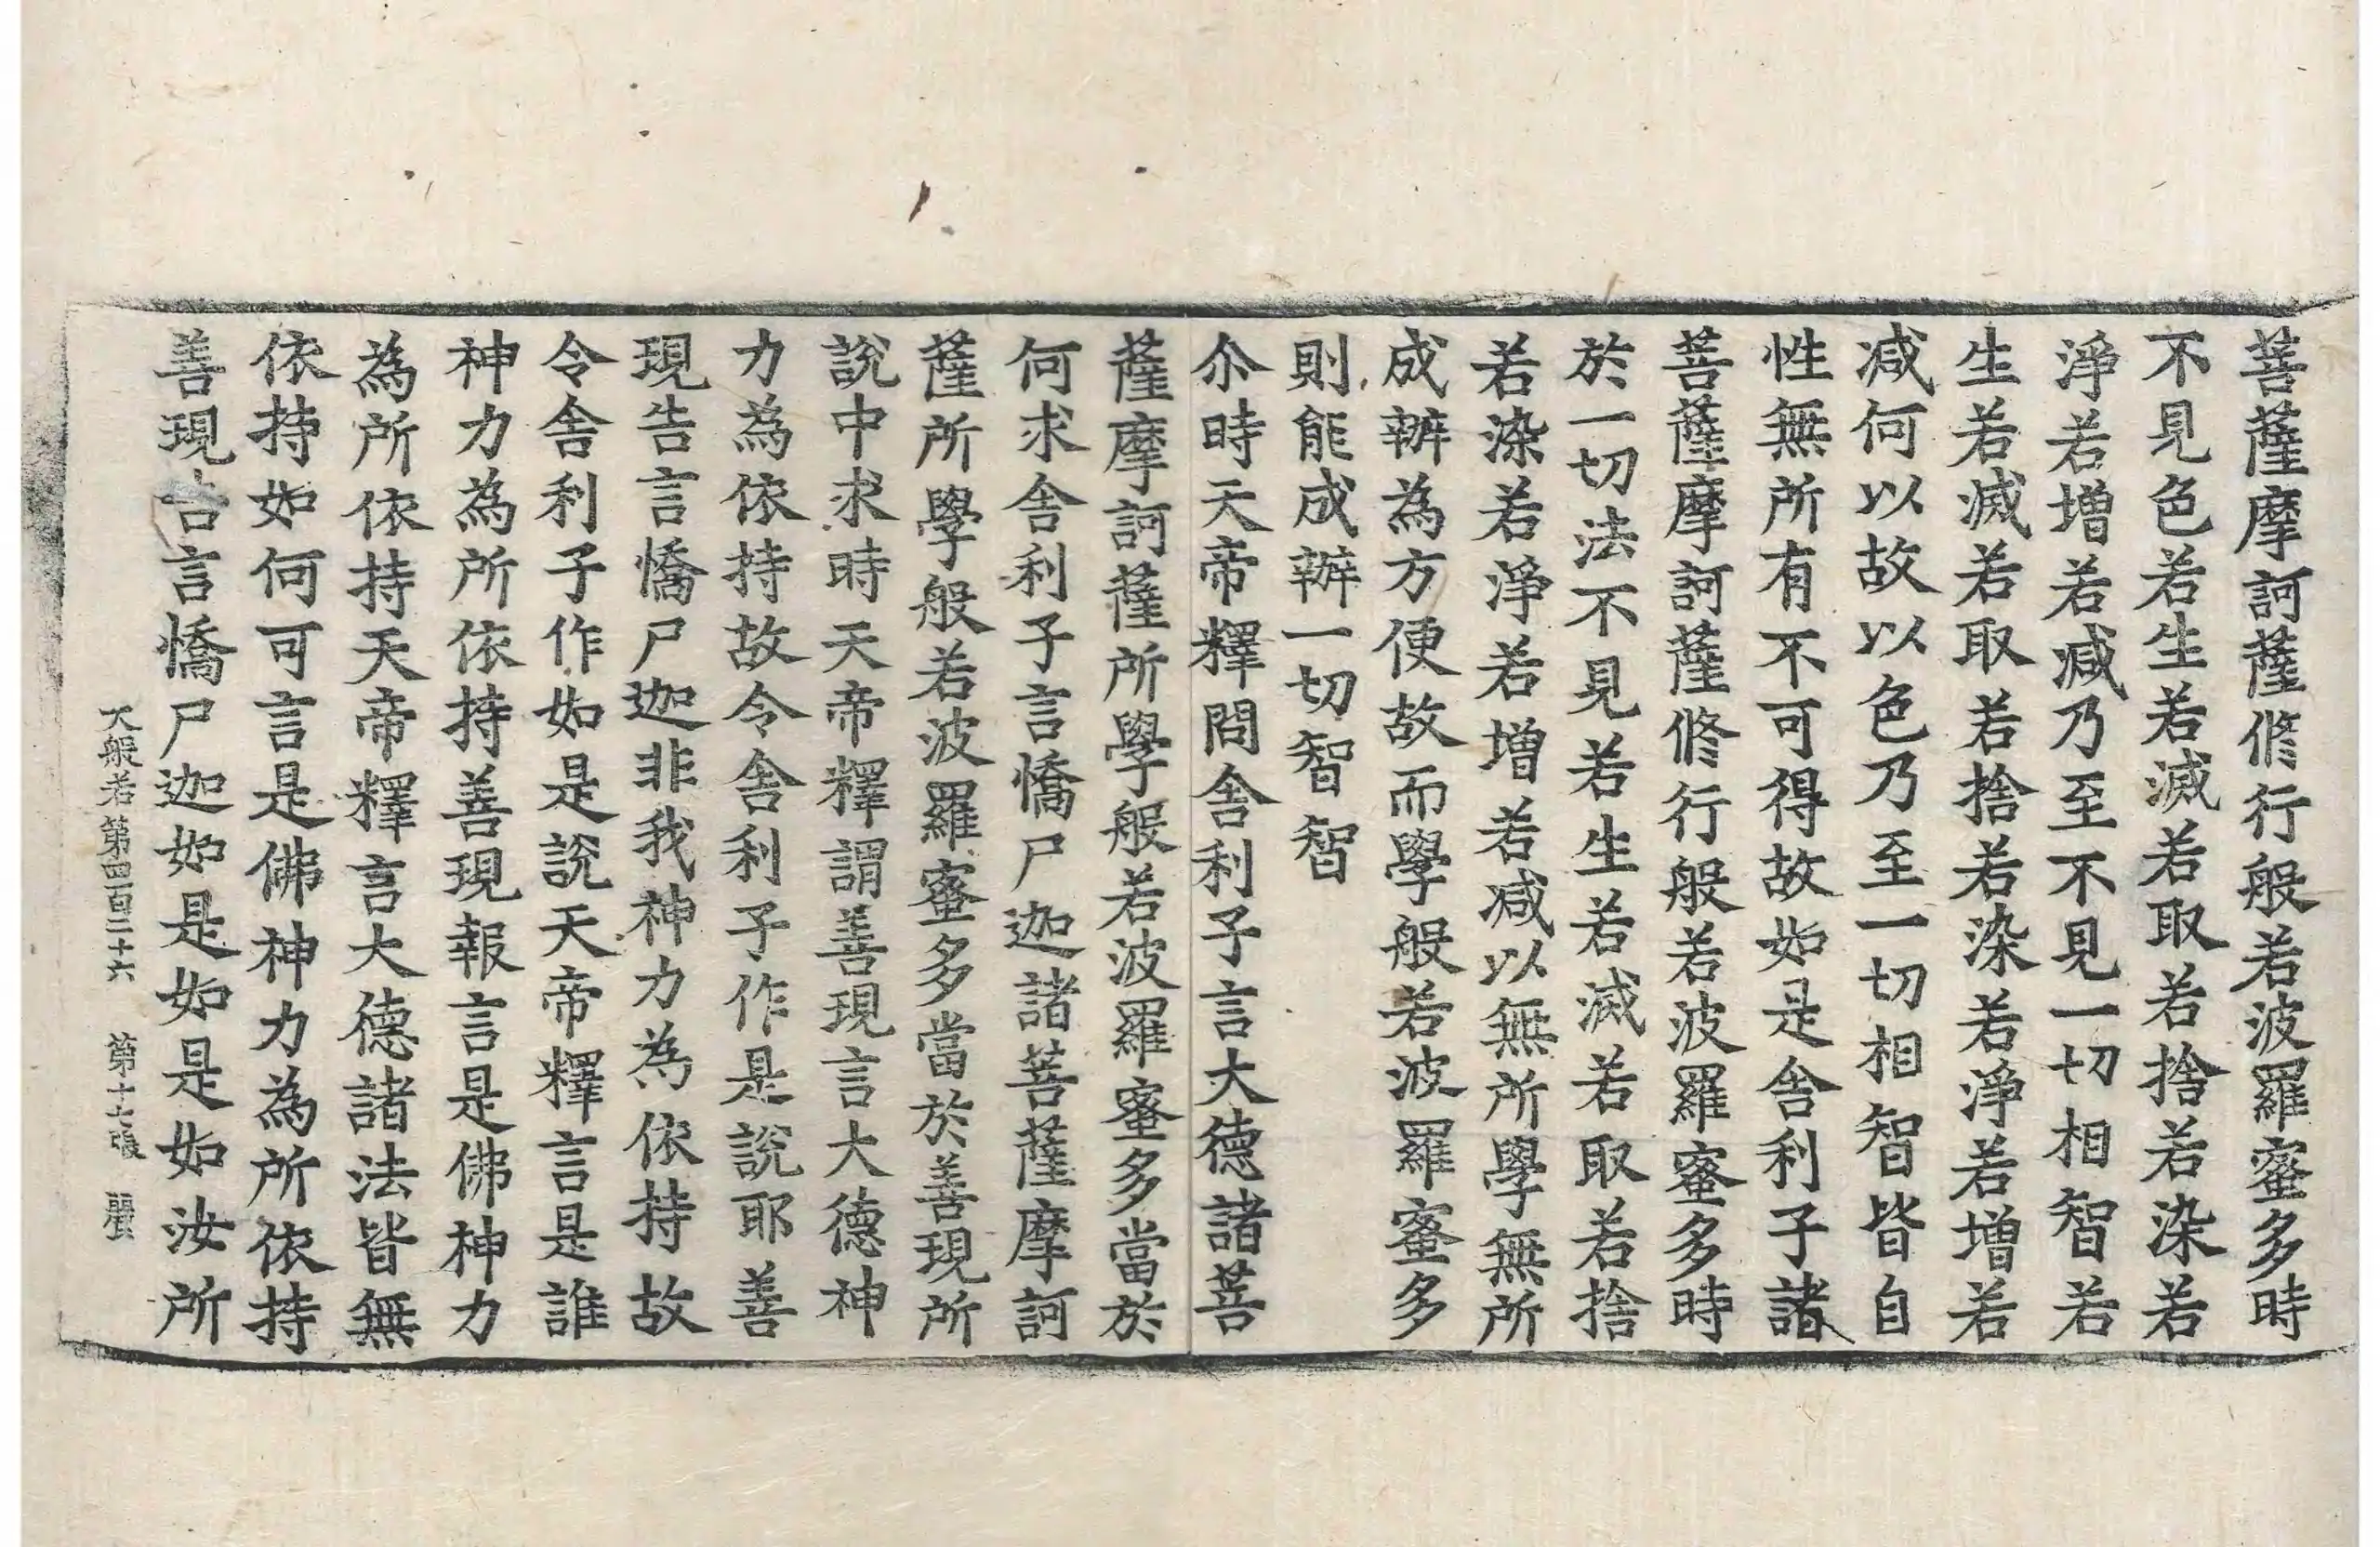 菩薩摩訶薩修行般若波羅蜜多時
不見色若生若滅若取若捨若染若
淨若增若減乃至不見一切相智若
生若滅若取若捨若染若淨若增若
減何以故以色乃至一切相智皆自
性無所有不可得故如是舍利子諸
菩薩摩訶薩修行般若波羅蜜多時
於一切法不見若生若滅若取若捨
若染若淨若增若減以無所學無所
成辦為方便故而學般若波羅蜜多
則能成辦一切智智
尒時天帝釋問舍利子言大德諸菩
薩摩訶薩所學般若波羅蜜多當於
何求舍利子言憍尸迦諸菩薩摩訶
薩所學般若波羅蜜多當於善現所
說中求時天帝釋謂善現言大德神
力為依持故令舍利子作是說耶善
現告言憍尸迦非我神力為依持故
令舍利子作如是說天帝釋言是誰
神力為所依持善現報言是佛神力
為所依持天帝釋言大德諸法皆無
依持如何可言是佛神力為所依持
善現告言憍尸迦如是如是如汝所
大般若第四百二十六 第十七張 麗